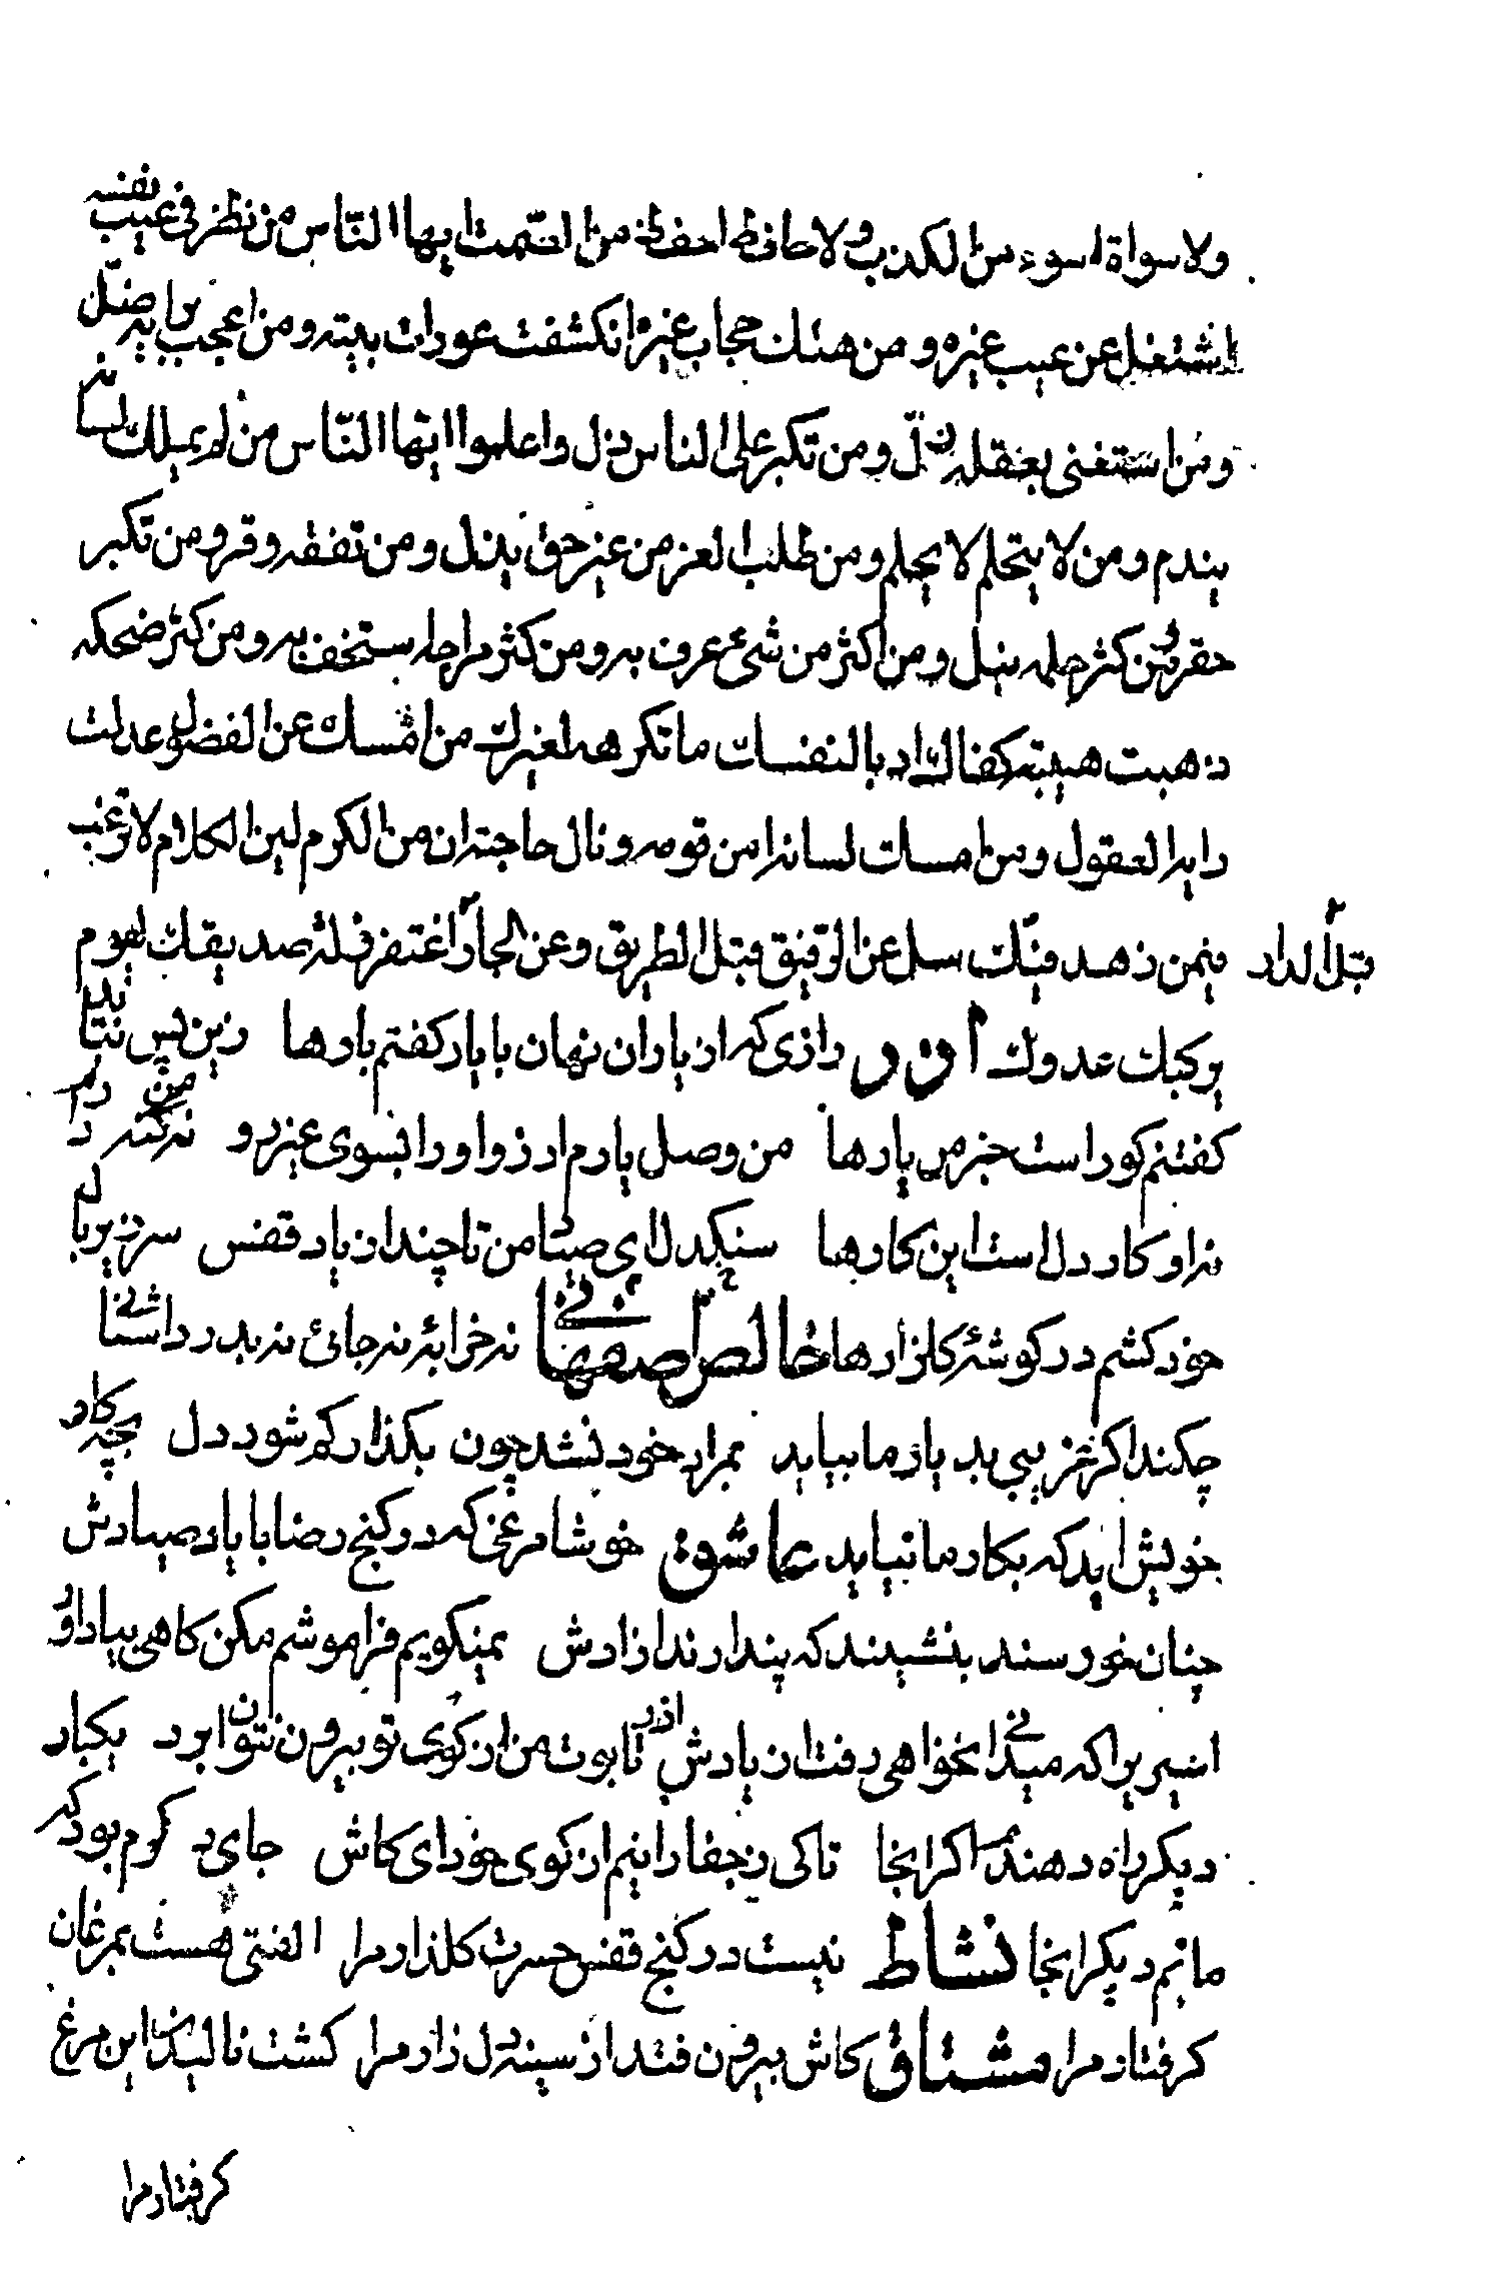 ولا سواة اسوء من الكذب ولا حافظ احفظ من الصّمت ايها النّاس من نظر فى عيب نفسه
اشتغل عن عيب غيره و من هتك حجاب غيره انكشفت عورات بيته و من اعجب برايه ضلّ
و من استغنى بعقله زلّ و من تكبر على الناس ذل و اعلموا ايّها النّاس من لم يملك لسانه
يندم و من لا يتحلم لا يحلم و من طلب العز من غير حق يذل و من تفقه وقر و من تكبر
حقر و من كثر حلمه نبل و من اكثر من شئ عرف به و من كثر مزاحه يستخف به و من كثر ضحكه
ذهبت هيبته كفاك ادبا لنفسك ما تكرهه لغيرك من امسك عن الفضول عدلت
رايه العقول و من امسك لسانه امن قومه و نال حاجته ان من الكرم لين الكلام لا ترغب
فيمن زهد فيك سل عن الرّفيق قبل الطريق و عن الجار قبل الدار اغتفر زلة صديقك ليوم
يركبك عدوك آذر رازى كه از ياران نهان با يار كفتم بارها زين پس نتابد
كفتنم كوراست جز من يارها من وصل يارم ارزو او را بسوى غير رو نه من كنه دارم
نه او كار دل است اين كارها سنكدل اى صياد من تا چند از ياد قفس سر زير بالم
خود كشم در كوشۀ كلزارها خالص اصفهانى نه خرابۀ نه جائى نه بدر داشنائى
چكند اكر غريبى بديار ما بيايد بمراد خود نشد چون بكذار كم شود دل بچه كار
خويش ايد كه بكار ما نيايد عاشق خوشا مرغى كه در كنج رضا با ياد صيادش
چنان خورسند بنشيند كه پندارند ازادش نميكويم فراموشم مكن كاهى بياد اور
اسيريرا كه ميدانى نخواهى رفت از يادش آذر تابوت من از كوى تو بيرون نتوان برد يكبار
ديكر راه دهندم اكر انجا تا كى ز جفا رانيم از كوى خود اى كاش جاى د كرم بود كه
مانم ديكر انجا نشاط نيست در كنج قفس حسرت كلذار مرا الفتى هست بمرغان
كرفتار مرا مشتاق كاش بيرون فتد از سينه دل زار مرا كشت ناليدن اين مرغ
كرفتار مرا